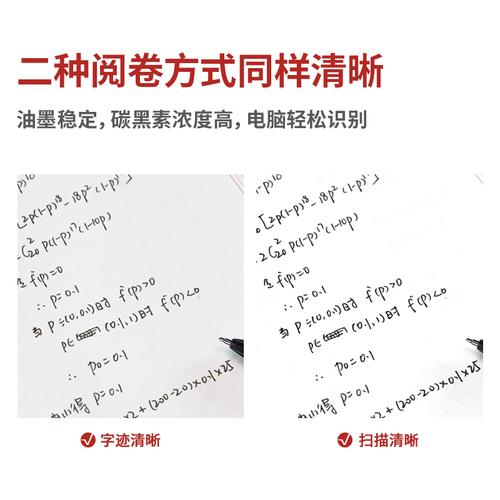 二种阅卷方式同样清晰
油墨稳定，碳黑素浓度高，电脑轻松识别
[2p(1-p)¹⁸-18p²(1-p)¹⁷]
=2C₂₀² p(1-p)¹⁷(1-10p)
令f'(p)=0
∴ p=0.1
当 P=(0,0.1)时 f'(p)>0
p∈ (0.1,1)时 f'(p)<0
∴ p₀=0.1
p=0.1
×2+(200-20)×0.1×25
字迹清晰
[2p(1-p)¹⁸-18p²(1-p)¹⁷]
2C₂₀² p(1-p)¹⁷(1-10p)
令f'(p)=0
∴ p=0.1
当 P=(0,0.1)时 f'(p)>0
p∈ (0.1,1)时 f'(p)<0
∴ p₀=0.1
得 p=0.1
×2+(200-20)×0.1×25
扫描清晰